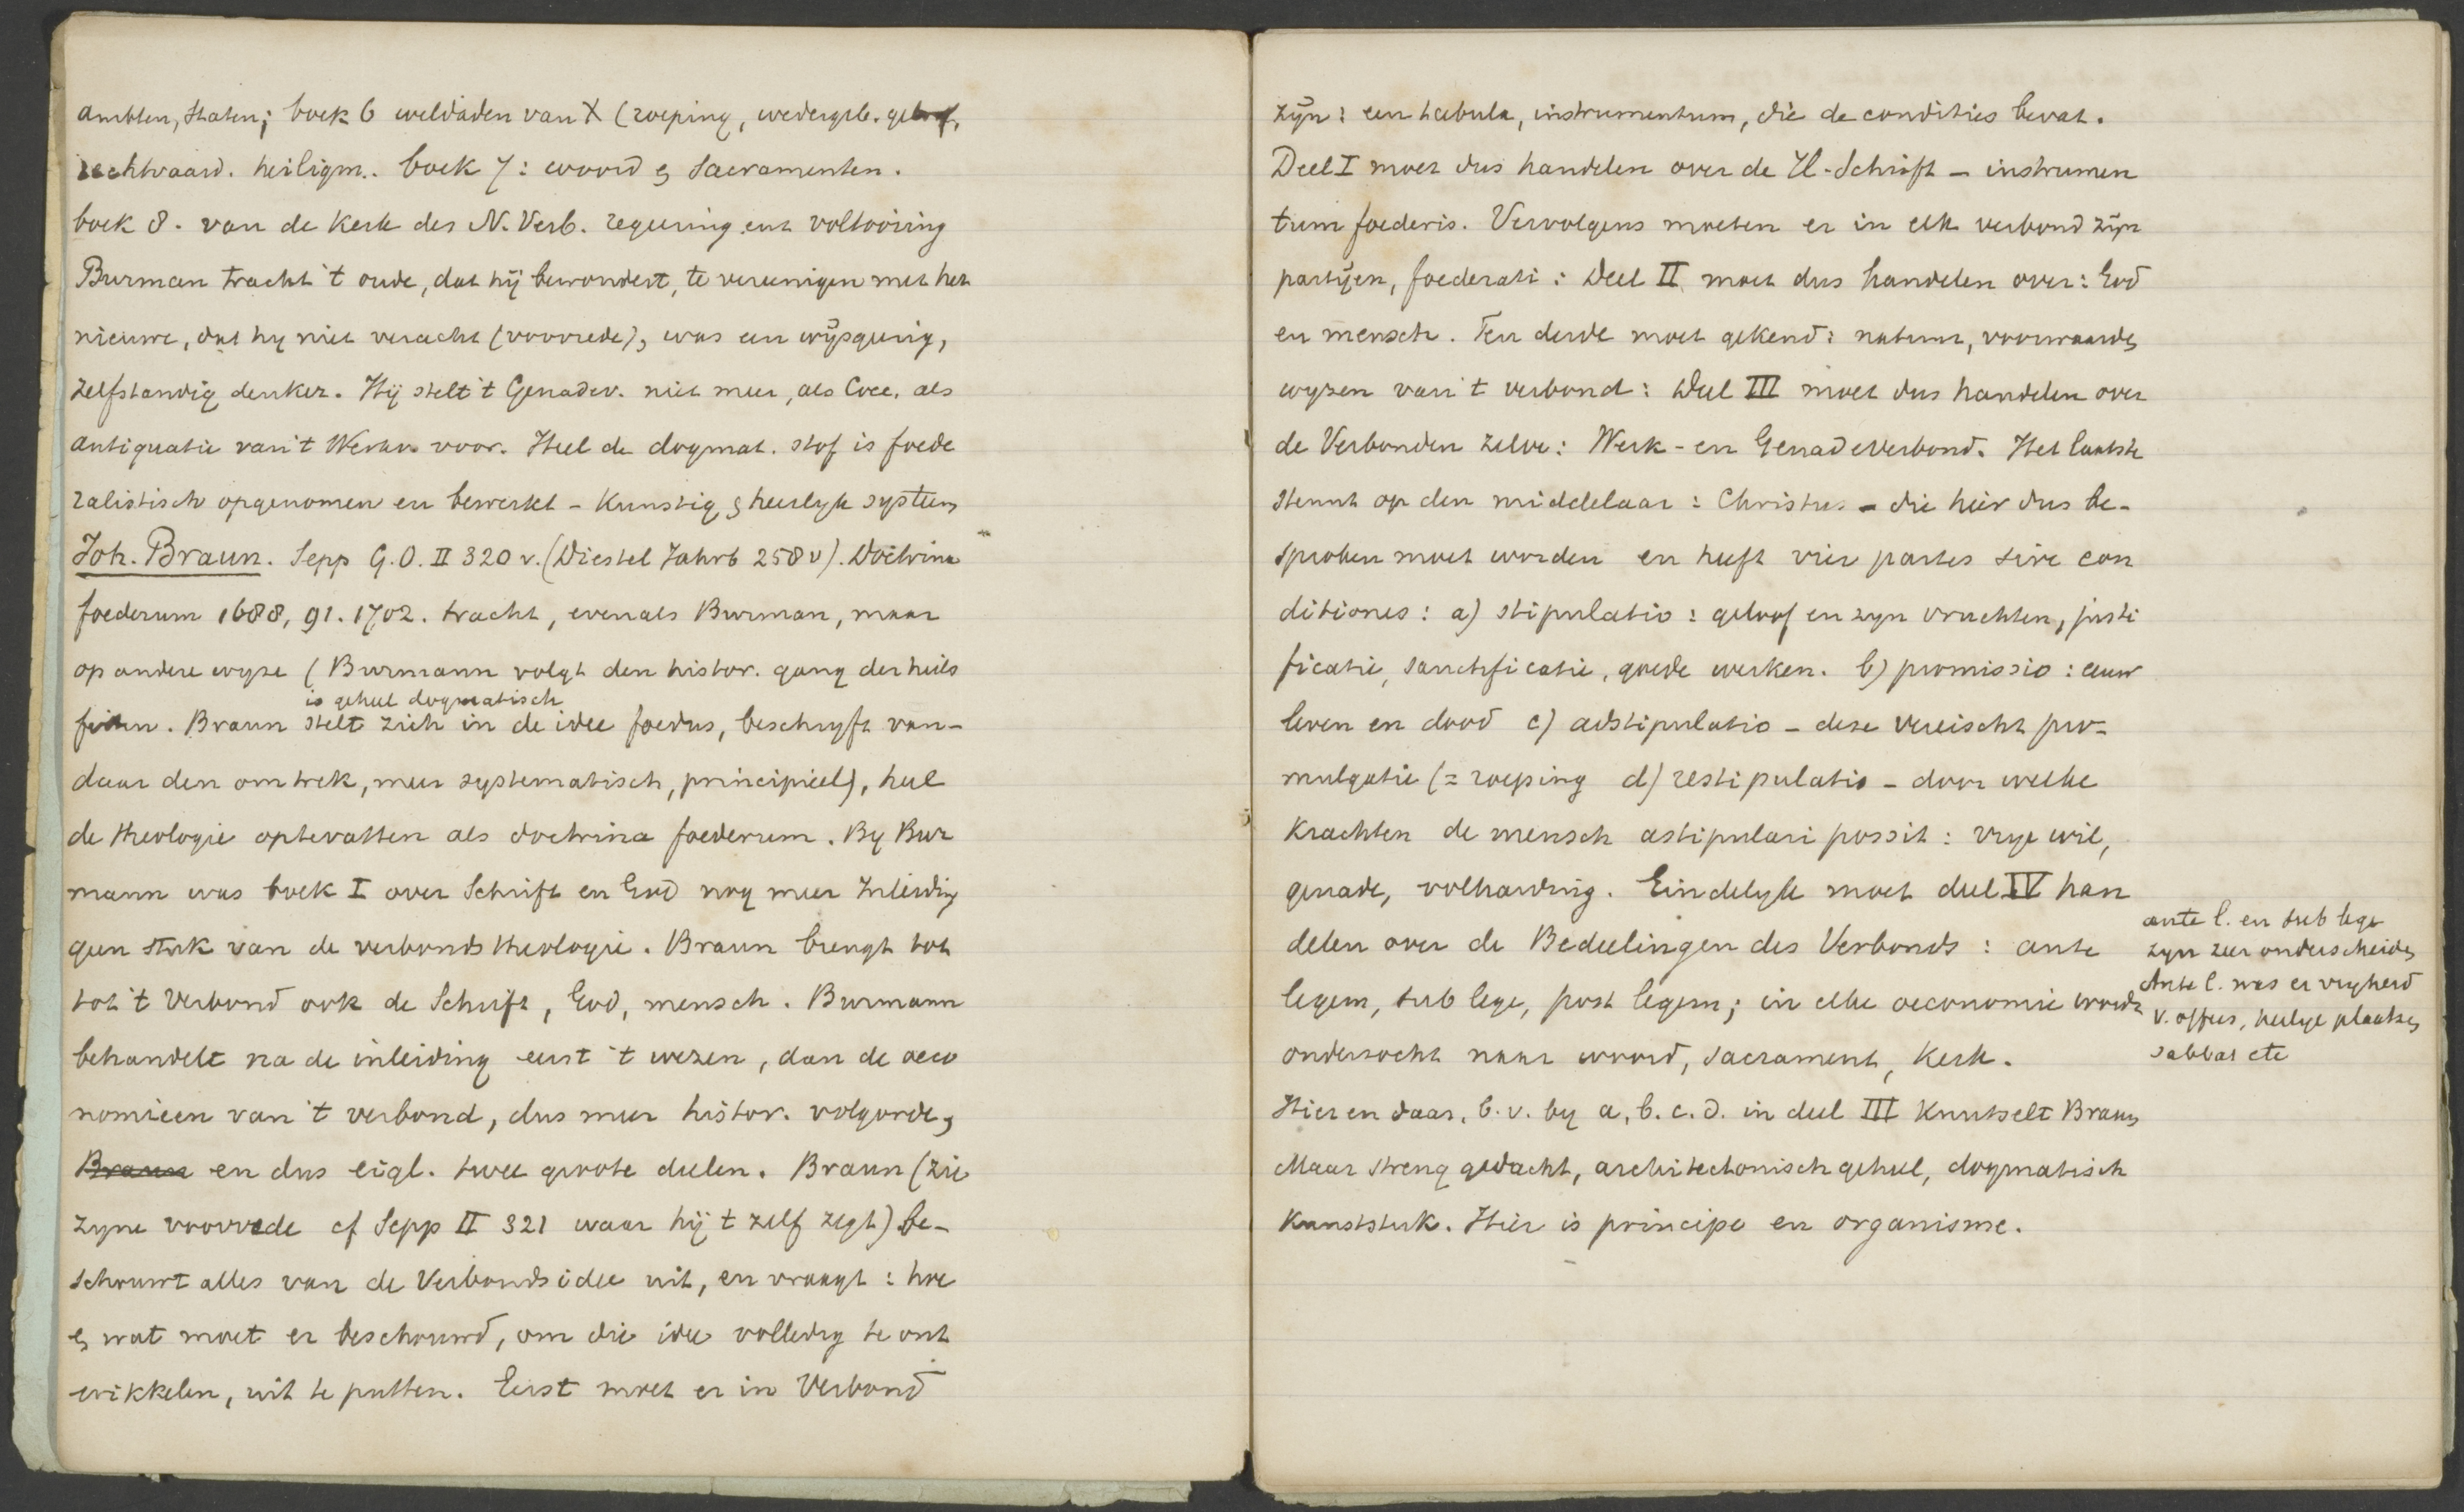 ambten, staten; boek 6 weldaden van X (roeping, wedergeb. geloof,
rechtvaard. heiligm.. boek 7: woord & sacramenten.
boek 8. van de kerk des N. Verb. regeering en voltooiing
Burman tracht 't oude, dat hij bewondert, te vereenigen met het
nieuwe, dat hy niet veracht (voorrede), was een wijsgeerig,
zelfstandig denker. Hij stelt 't Genadev. niet meer, als Cocc. als
antiquatie van 't Werkv. voor. Heel de dogmat. stof is foede
ralistisch opgenomen en bewerkt - kunstig & heerlyk systeem
Joh. Braun. Sepp G.O. II 320 v. (Diestel Jahrb 258 v). Doctrina
foederum 1688, 91. 1702. tracht, evenals Burman, maar
op andere wyze (Burmann volgt den histor. gang der heils
is geheel dogmatisch
feiten. Braun stelt zich in de idee foedus, beschryft van-
daar den omtrek, meer systematisch, principieel), heel
de theologie optevatten als doctrina foederum. By Bur
mann was boek I over Schrift en God nog meer Inleiding
geen stuk van de verbondstheologie. Braun brengt tot
tot 't Verbond ook de Schrift, God, mensch. Burmann
behandelt na de inleiding eerst 't wezen, dan de oeco
nomieen van 't verbond, dus meer histor. volgorde,
Braun en dus eigl. twee groote deelen. Braun (zie
zyne voorrede cf Sepp II 321 waar hij t zelf zegt) be-
schouwt alles van de Verbondsidee uit, en vraagt: hoe
& wat moet er beschouwd, om die idee volledig te ont
wikkelen, uit te putten. Eerst moet er in Verbond
zijn: een tabula, instrumentum, die de condities bevat.
Deel I moet dus handelen over de H. Schrift - instrumen
tum foederis. Vervolgens moeten er in elk verbond zijn
partijen, foederati: Deel II moet dus handelen over: God
en mensch. Ten derde moet gekend: natuur, voorwaarden
wyzen van 't verbond: Deel III moet dus handelen over
de Verbonden zelve: Werk- en Genadeverbond. Het laatste
steunt op den middelaar: Christus - die hier dus be-
sproken moet worden en heeft vier partes sive con
ditiones: a) stipulatio: geloof en zyn vruchten, justi
ficatie, sanctificatie, goede werken. b) promissio: eeuw
leven en dood c) adstipulatio - deze vereischt pro-
mulgatie (= roeping d) restipulatio - door welke
krachten de mensch astipulari possit: vrye wil,
genade, volharding. Eindelyk moet deel IV han
delen over de Bedeelingen des Verbonds: ante
legem, sub lege, post legem; in elke oeconomie wordt
onderzocht naar woord, sacrament, kerk.
Hier en daar, b.v. by a, b. c. d. in deel III knutselt Braun
Maar streng gedacht, architectonisch geheel, dogmatisch
kunststuk. Hier is principe en organisme.
ante l. en sub lege
zyn zeer onderscheiden
Ante l. was er vryheid
v. offers, heilige plaatsen,
sabbat etc